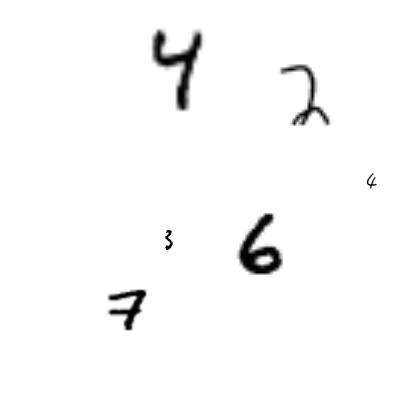 4
2
4
3
6
7